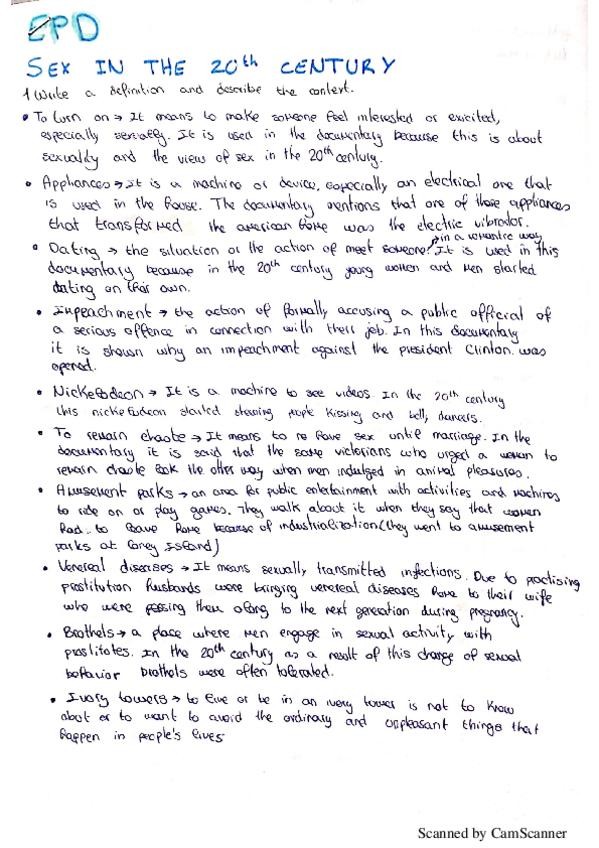 EPD
SEX IN THE 20th CENTURY
1 Write a definition and describe the context.
• To turn on → It means to make someone feel interested or exicited,
especially sexually. It is used in the documentary because this is about
sexuality and the view of sex in the 20th century.
• Appliances → it is a machine or device, especially an electrical one that
is used in the house. The documentary mentions that one of those appliances
that transformed the american home was the electric vibrator.
in a romantic way
• Dating → the situation or the action of meet someone. It is used in this
documentary because in the 20th century young women and men started
dating on their own.
• Impeachment → the action of formally accusing a public official of
a serious offence in connection with their job. In this documentary
it is shown why an impeachment against the president Clinton was
opened.
• Nickelodeon → It is a machine to see videos. In the 20th century
this nickelodeon started showing people kissing and belly dancers.
• To remain chaste → It means to no have sex until marriage. In the
documentary it is said that the same victorians who urged a woman to
remain chaste look the other way when men indulged in animal pleasures.
• Amusement parks → an area for public entertainment with activities and machines
to ride on or play games. They walk about it when they say that women
had to leave home because of industrialization (they went to amusement
parks at Coney Island)
• Venereal diseases → It means sexually transmitted infections. Due to practising
prostitution husbands were bringing venereal diseases home to their wife
who were passing them along to the next generation during pregnancy.
• Brothels → a place where men engage in sexual activity with
prostitutes. In the 20th century as a result of this change of sexual
behavior brothels were often tolerated.
• Ivory towers → to live or be in an ivery tower is not to know
about or to want to avoid the ordinary and unpleasant things that
happen in people's lives
Scanned by CamScanner